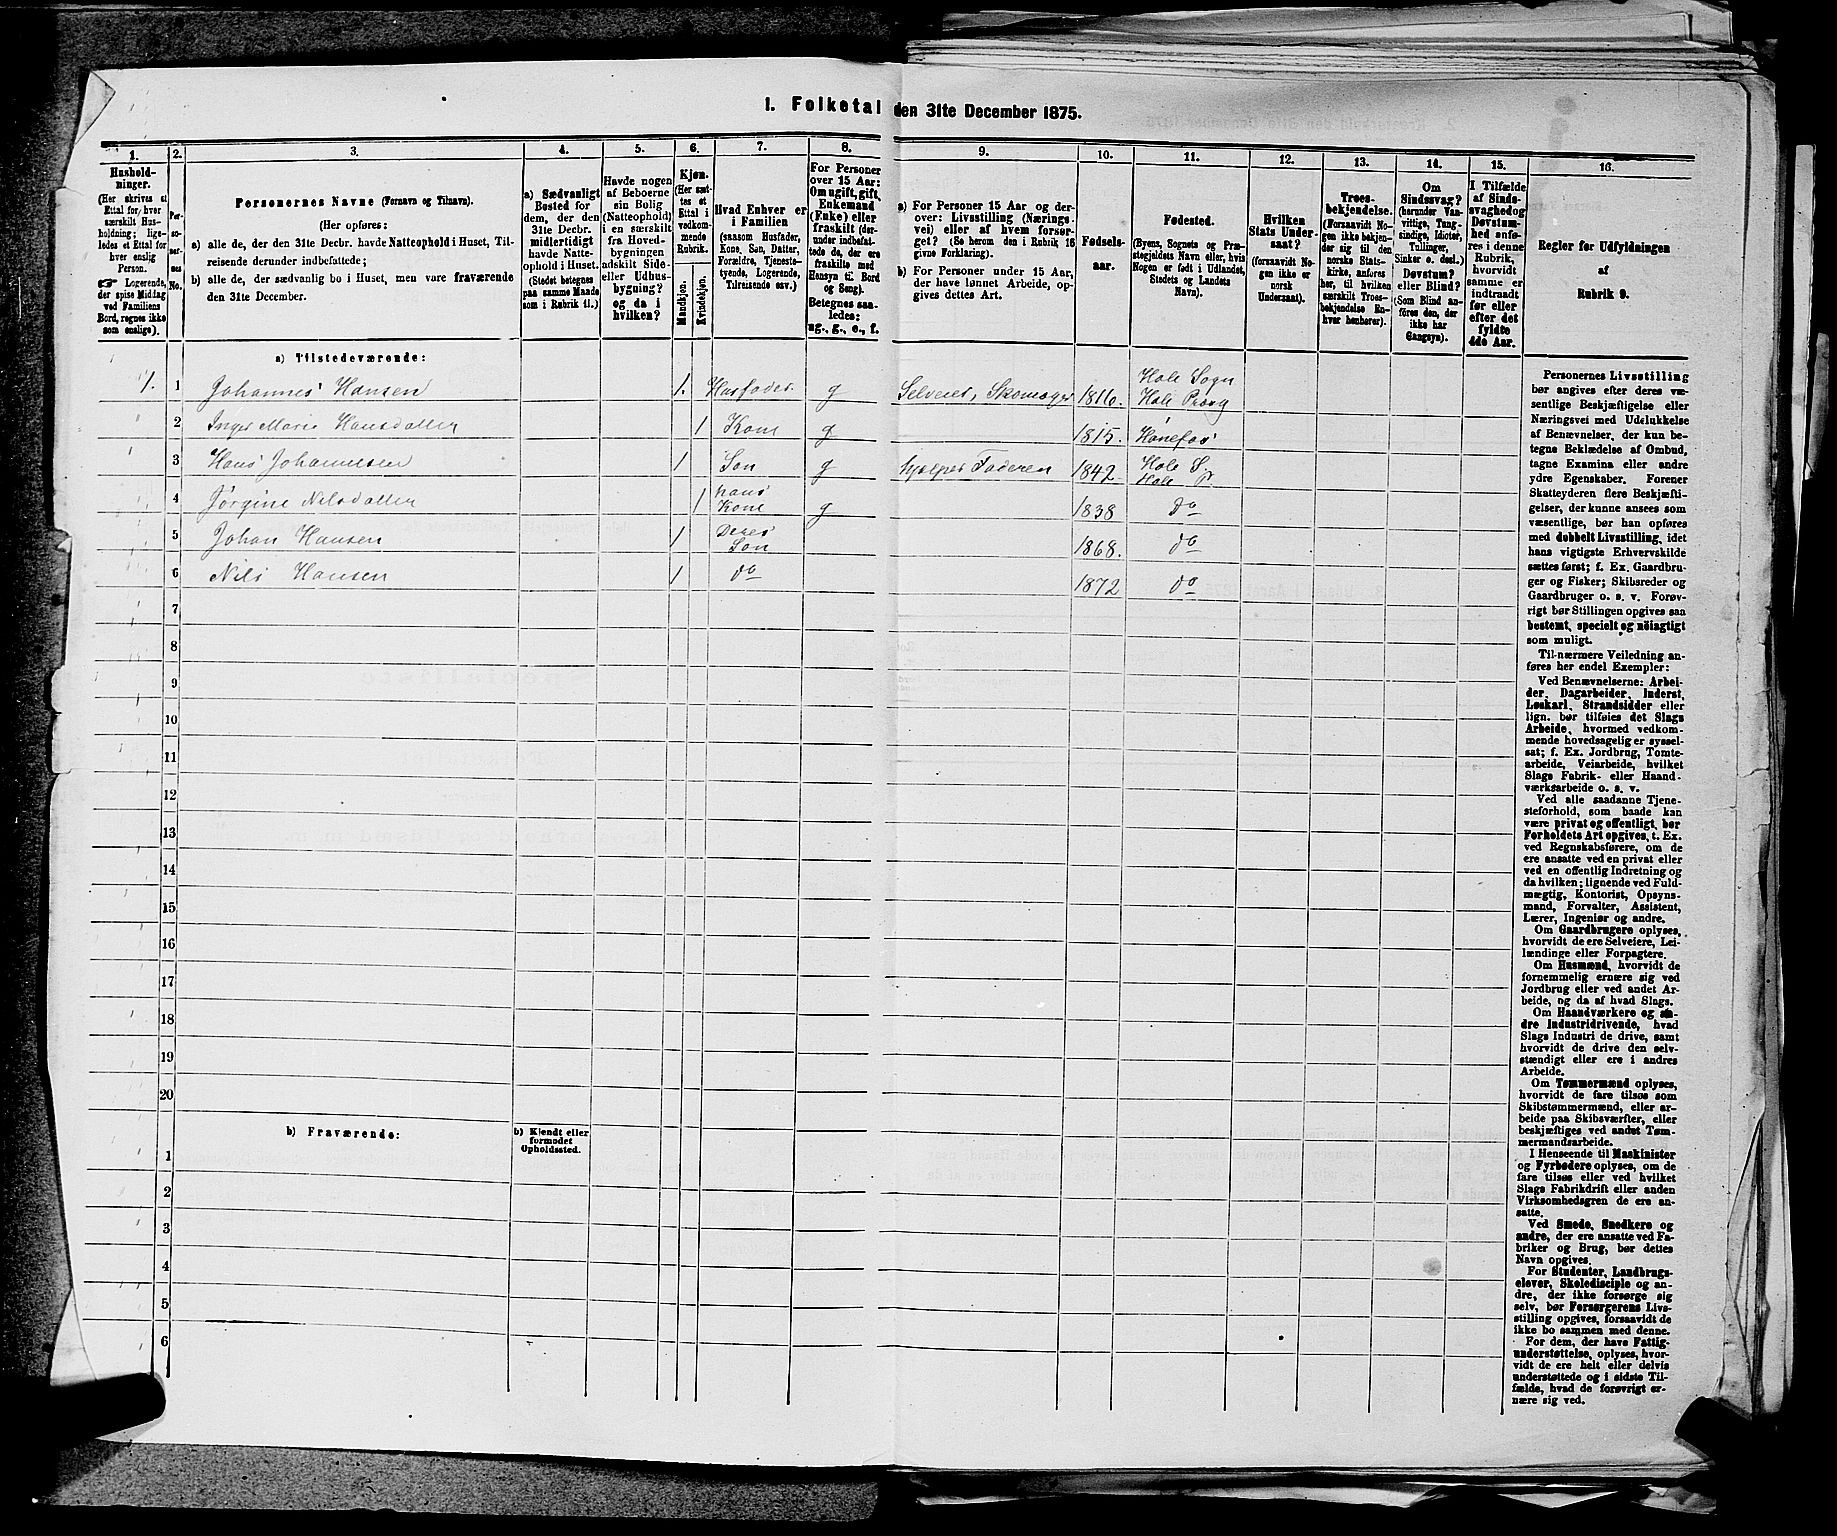 1. Folketal den 31te December 1875.
1. 2. 3. 4. 5. 6. 7. 8. 9. 10. 11. 12. 13. 14. 15. 16.
Husholdninger.
(Her skrives et
Ettal for hver
særskilt Husholdning; ligeledes et Ettal for
hver enslig
Person.
☞ Logerende,
der spise Middag
ved Familiens
Bord, regnes ikke
som enslige).
Personernes No.
Personernes Navne (Fornavn og Tilnavn).
(Her opføres:
a) alle de, der den 31te Decbr. havde Natteophold i Huset, Tilreisende derunder indbefattede;
b) alle de, der sædvanlig bo i Huset, men vore fraværende
den 31te December.
a) Sædvanligt
Bosted for
dem, der den
31te Decbr.
midlertidigt
havde Natteophold i Huset.
(Stedet betegnes
paa samme Maade
som i Rubrik 11.)
Havde nogen
af Beboerne
sin Bolig
(Natteophold)
i en særskilt
fra Hovedbygningen
adskilt Side-
eller Udhusbygning?
og da i
hvilken?
Kjøn.
(Her sættes et
Ettal i
vedkommende
Rubrik.
Mandkjøn.
Kvindekjøn.
Hvad Enhver er
i Familien
(saasom Husfader,
Kone, Søn, Datter,
Forældre, Tjenestetyende, Logerende,
Tilreisende osv.)
For Personer
over 15 Aar:
Om ugift, gift,
Enkemand
(Enke) eller
fraskilt (derunder indbefattede de, der ere
fraskilte med
Hensyn til Bord
og Seng).
Betegnes saaledes:
ug., g., e., f.
a) For Personer 15 Aar og derover: Livsstilling (Næringsvei) eller af hvem forsørget? (Se herom den i Rubrik 16
givne Forklaring).
b) For Personer under 15 Aar,
der have lønnet Arbeide, opgives dettes Art.
Fødselsaar.
Fødested.
(Byens, Sognets og Præstegjeldets Navn eller, hvis
Nogen er født i Udlandet,
Stedets og Landets
Navn).
Hvilken
Stats Undersaat?
(forsaavidt Nogen ikke er
norsk
Undersaat).
Troesbekjendelse.
(Forsaavidt Nogen ikke bekjender sig til den
norske Statskirke, anføres
her, til hvilken
særskilt Troesbekjendelse Enhver henhører).
Om
Sindssvag?
(herunder Vanvittige, Tungsindige, Idioter,
Tullinger,
Sinker o. desl.)
Døvstum?
eller Blind?
(Som Blind anføres den, der
ikke har
Gangsyn).
I Tilfælde
af Sindssvaghed og
Døvstumhed anføres i denne
Rubrik,
hvorvidt
samme er
indtraadt
før eller
efter det
fyldte
4de Aar.
Regler for Udfyldningen
af
Rubrik 9.
a) Tilstedeværende:
1. 1 Johannes Hansen 1. Husfader g Selveier, Skomager 1816. Hole Sogn Hole Præstg
2 Inger Marie Hansdatter 1 Kone g 1815. Hønefos
3 Hans Johannesen 1 Søn g hjelper Faderen 1842 Hole S. Hole Pr
4 Jørgine Nilsdatter 1 hans Kone g 1838 do
5 Johan Hansen 1 Deres Søn 1868. do
6 Nils Hansen 1 do 1872 do
7
8
9
10
11
12
13
14
15
16
17
18
19
20
b) Fraværende:
b) Kjendt eller
formodet
Opholdssted.
1
2
3
4
5
6
Personernes Livsstilling
bør angives efter deres væsentlige Beskjæftigelse eller
Næringsvei med Udelukkelse
af Benævnelser, der kun betegne Beklædelse af Ombud,
tagne Examina eller andre
ydre Egenskaber. Forener
Skatteyderen flere Beskjæftigelser, der kunne ansees som
væsentlige, bør han opføres
med dobbelt Livsstilling, idet
hans vigtigste Erhvervskilde
sættes først; f. Ex. Gaardbruger og Fisker; Skibsreder og
Gaardbruger o. s. v. Forøvrigt bør Stillingen opgives saa
bestemt, specielt og nöiagtigt
som muligt.
Til nærmere Veiledning anføres her endel Exempler:
Ved Benævnelserne: Arbeider, Dagarbeider, Inderst,
Løskarl, Strandsidder eller
lign. bør tilføies det Slags
Arbeide, hvormed vedkommende hovedsagelig er sysselsat; f. Ex. Jordbrug, Tomtearbeide, Veiarbeide, hvilket
Slags Fabrik- eller Haandværksarbeide o. s. v.
Ved alle saadanne Tjenesteforhold, som baade kan
være privat og offentligt, bør
Forholdets Art opgives, t. Ex.
ved Regnskabsførere, om de
ere ansatte ved en privat eller
ved en offentlig Indretning og
da hvilken; lignende ved Fuldmægtig, Kontorist, Opsynsmand, Forvalter, Assistent,
Lærer, Ingeniør og andre.
Om Gaardbrugere oplyses,
hvorvidt de ere Selveiere, Leilændinge eller Forpagtere.
Om Husmænd, hvorvidt de
fornemmelig ernære sig ved
Jordbrug eller ved andet Arbeide, og da af hvad Slags.
Om Haandværkere og andre Industridrivende, hvad
Slags Industri de drive, samt
hvorvidt de drive den selvstændigt eller ere i andres
Arbeide.
Om Tømmermænd oplyses,
hvorvidt de fare tilsøs som
Skibstømmermænd, eller arbeide paa Skibsværfter, eller
beskjæftiges ved andet Tømmermandsarbeide.
I Henseende til Maskinister
og Fyrbødere oplyses, om de
fare tilsøs eller ved hvilket
Slags Fabrikdrift eller anden
Virksomhedsgren de ere ansatte.
Ved Smede, Snedkere og
andre, der ere ansatte ved Fabriker og Brug, bør dettes
Navn opgives.
For Studenter, Landbrugselever, Skoledisciple og andre, der ikke forsørge sig
selv, bør Forsørgerens Livsstilling opgives, forsaavidt de
ikke bo sammen med denne.
For dem, der have Fattigunderstøttelse, oplyses, hvorvidt de ere helt eller delvis
understøttede og i sidste Tilfælde, hvad de forøvrigt ernære sig ved.